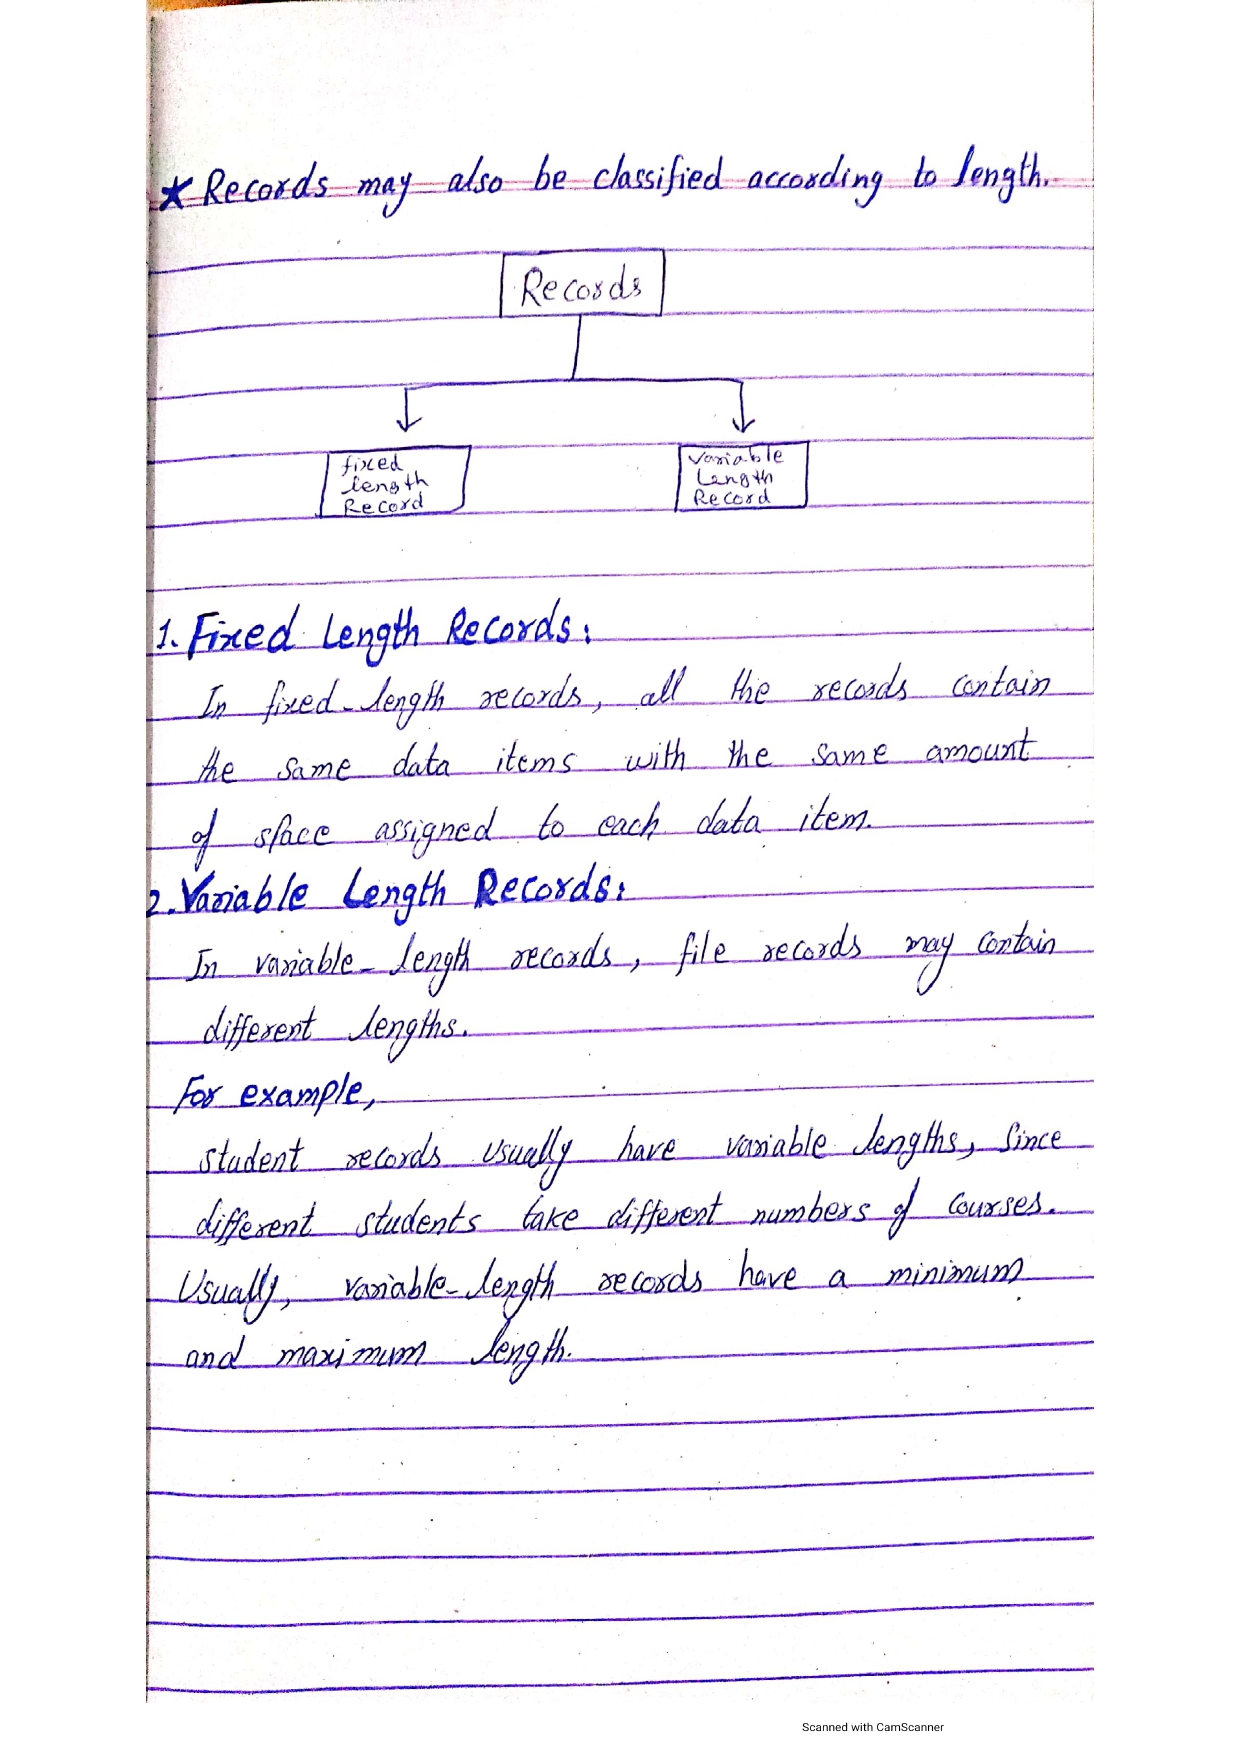 ★ Records may also be classified according to length.
Records
fixed
length
Record
Variable
Length
Record
1. Fixed Length Records:
In fixed-length records, all the records contain
the same data items with the same amount
of space assigned to each data item.
2. Variable Length Records:
In variable-length records, file records may contain
different lengths.
For example,
student records usually have variable lengths, since
different students take different numbers of courses.
Usually, variable-length records have a minimum
and maximum length.
Scanned with CamScanner